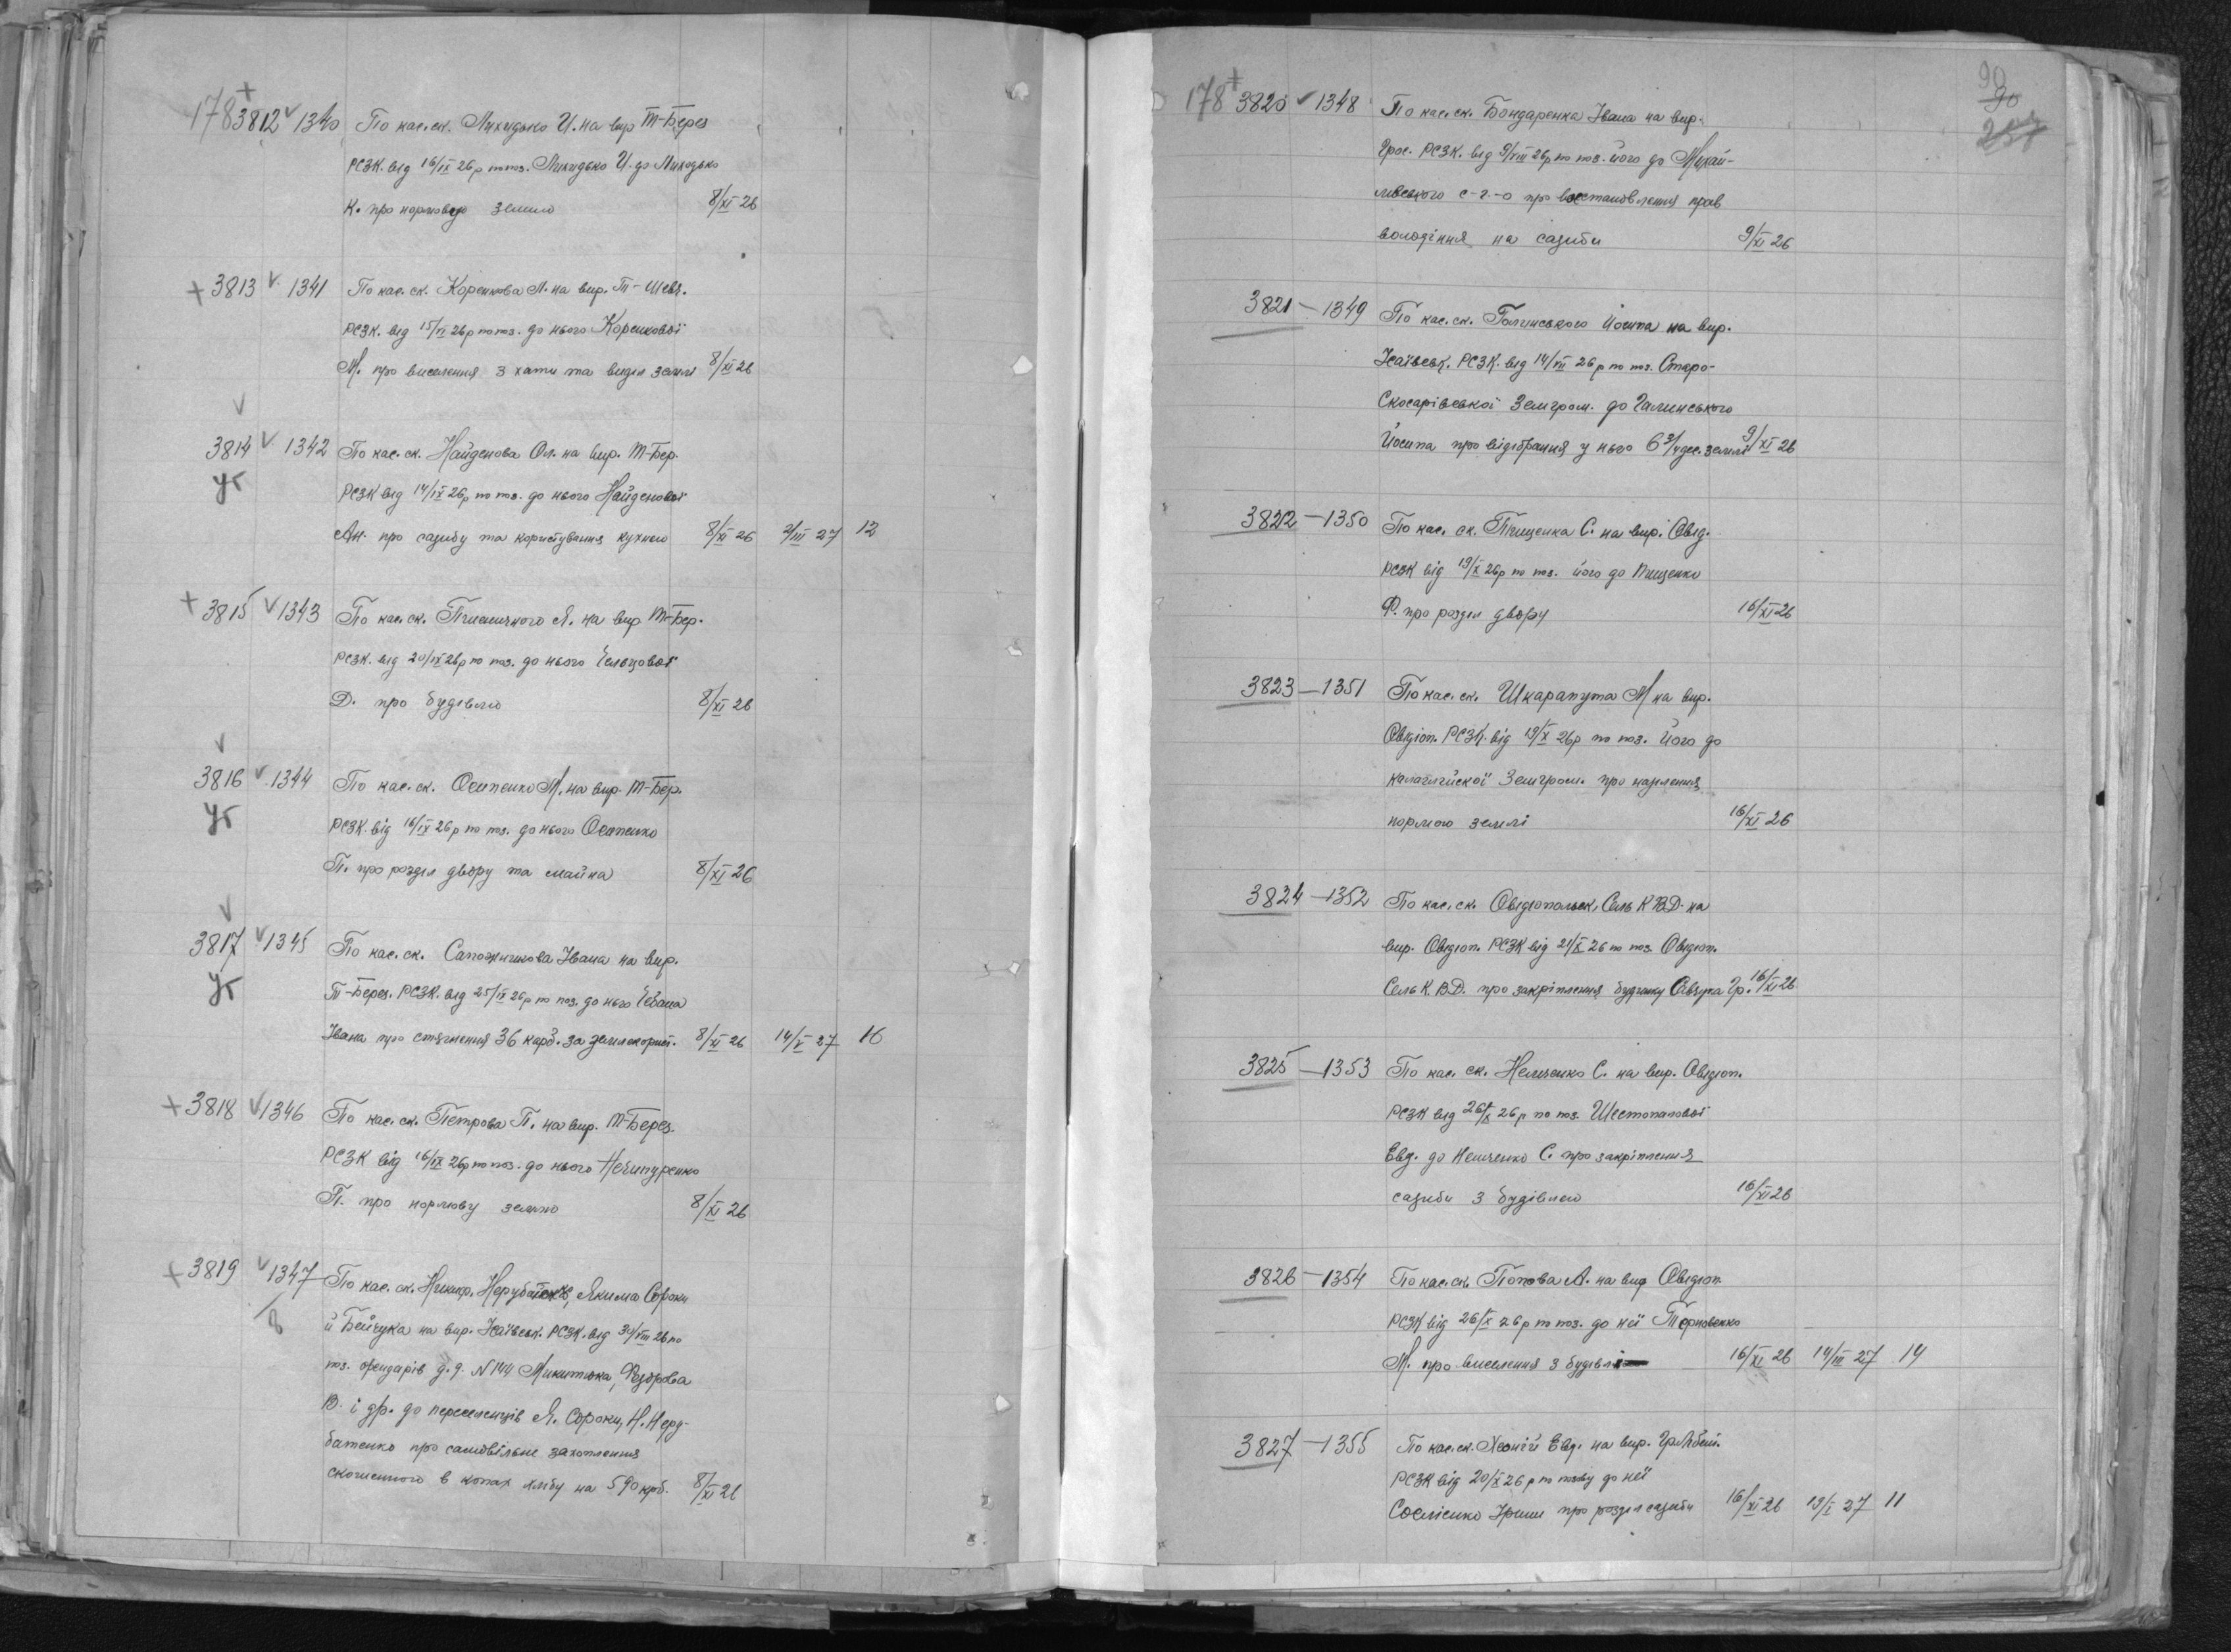 178 + 3812 v 1340 По кас. ск. Лиходько И. на вир Т-Берез
РСЗК. від 16/IX 26 р по поз. Лиходько И. до Лиходько
К. про нормову землю 8/XI 26
+ 3813 v 1341 По кас. ск. Коренкова Л. на вир. Т-Шевч.
РСЗК. від 15/VI 26р по поз. до нього Коренкової
М. про виселення з хати та виділ землі 8/XI 26
v
3814 v 1342 По кас. ск. Найденова Ол. на вир. Т-Бер.
Уг РСЗК від 14/IX 26р по поз. до нього Найденової
Ан. про садибу та користування кухнею 8/XI 26 2/III 27 12
+ 3815 v 1343 По кас. ск. Пшеничного Я. на вир Т-Бер.
РСЗК. від 20/IX 26р по поз. до нього
Д. про будівлю 8/XI 26
v
3816 v 1344 По кас. ск. Осипенко М. на вир. Т-Бер.
Уг РСЗК. від 16/IX 26 р по поз. до нього Осипенко
П. про розділ двору та майна 8/XI 26
v
3817 v 1345 По кас. ск. Сапожникова Івана на вир.
Уг Т-Берез. РСЗК. від 25/IX 26 р по поз. до нього Чебана
Івана про стягнення 36 карб. за землекорист. 8/XI 26 14/V 27 16
+ 3818 v 1346 По кас. ск. Петрова П. на вир. Т-Берез.
РСЗК від 16/IX 26р по поз. до нього Нечипуренко
П. про нормову землю 8/XI 26
+ 3819 v 1347 По кас. ск. Никиф. Нерубатенко, Якима Сороки
й Бейчука на вир. Ісаївськ. РСЗК. від 30/VIII 26 по
поз. орендарів д. д. N 144 Микитюка, Федорова
В. і др. до переселенців Я. Сороки, Н. Неру-
батенко про самовільне захоплення
скошенного в копах хлібу на 590 крб. 8/XI 26
90
90
178 + 3820 v 1348 По кас. ск. Бондаренка Івана на вир.
Грос. РСЗК. від 9/VIII 26р по поз. його до Михай-
лівського с-г-о про восстановлення прав
володіння на садиби 9/XI 26
3821 - 1349 По кас. ск. Галинського Йосипа на вир.
Ісаївськ. РСЗК. від 14/VII 26 р по поз. Старо-
Скосарівської Земгром. до Галинського
Йосипа про відібрання у нього 6 3/4 дес. землі 9/XI 26
3822 - 1350 По кас. ск. Пищенка С. на вир. Овід.
РСЗК від 19/X 26р по поз. його до Пищенко
Ф. про розділ двору 16/XI 26
3823 - 1351 По кас. ск. Шкарапута М на вир.
Овідіоп. РСЗК. від 19/X 26р по поз. його до
калаглійскої Земгром. про наділення
нормою землі 16/XI 26
3824 - 1352 По кас. ск. Овідіопольськ. Сель К ВД. на
вир. Овідіоп. РСЗК від 21/X 26 по поз. Овідіоп.
Сель К. В.Д. про закріплення будинку Савчука Гр. 16/XI 26
3825 - 1353 По кас. ск. Немченко С. на вир. Овідіоп.
РСЗК від 26/X 26 р по поз. Шестопалової
Евд. до Немченко С. про закріплення
садиби з будівлею 16/XI 26
3826 - 1354 По кас. ск. Попова А. на вир Овідіоп.
РСЗК від 26/X 26 р по поз. до неї Терновенко
М. про виселення з будівлі 16/XI 26 14/III 27 14
3827 - 1355 По кас. ск. Евд. на вир.
РСЗК від 20/X 26 р по позву до неї
про розділ садиби 16/XI 26 13/I 27 11